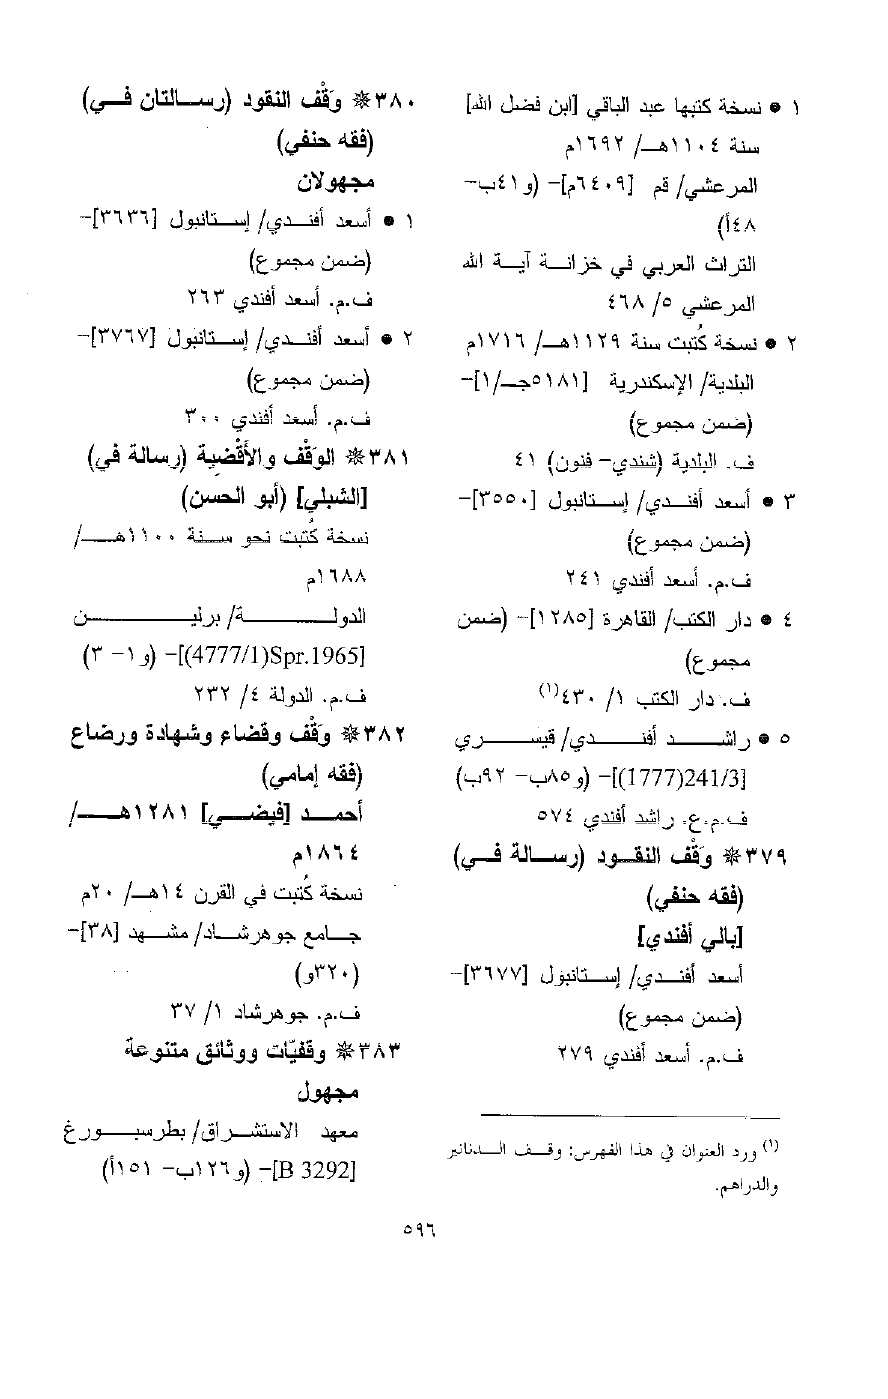 ١ • نسخة كتبها عبد الباقي [ابن فضل الله]
سنة ١١٠٤هـ/ ١٦٩٢م
المرعشي/ قم [٦٤٠٩م]- (و٤١ب-
٤٨أ)
التراث العربي في خزانة آية الله
المرعشي ٥/ ٤٦٨
٢ • نسخة كُتبت سنة ١١٢٩هـ/ ١٧١٦م
البلدية/ الإسكندرية [٥١٨١جـ/١]-
(ضمن مجموع)
ف. البلدية (شندي- فنون) ٤١
٣ • أسعد أفندي/ إستانبول [٣٥٥٠]-
(ضمن مجموع)
ف.م. أسعد أفندي ٢٤١
٤ • دار الكتب/ القاهرة [١٢٨٥]- (ضمن
مجموع)
ف. دار الكتب ١/ ٤٣٠(١)
٥ • راشد أفندي/ قيسري
[241/3(1777)]- (و٨٥ب- ٩٢ب)
ف.م.ع. راشد أفندي ٥٧٤
٣٧٩❋ وَقْف النقود (رسالة في)
(فقه حنفي)
[بالي أفندي]
أسعد أفندي/ إستانبول [٣٦٧٧]-
(ضمن مجموع)
ف.م. أسعد أفندي ٢٧٩
(١) ورد العنوان في هذا الفهرس: وقف الدنانير
والدراهم.
٣٨٠❋ وَقْف النقود (رسالتان في)
(فقه حنفي)
مجهولان
١ • أسعد أفندي/ إستانبول [٣٦٣٦]-
(ضمن مجموع)
ف.م. أسعد أفندي ٢٦٣
٢ • أسعد أفندي/ إستانبول [٣٧٦٧]-
(ضمن مجموع)
ف.م. أسعد أفندي ٣٠٠
٣٨١❋ الوَقْف والأَقْضِية (رسالة في)
[الشبلي] (أبو الحسن)
نسخة كُتبت نحو سنة ١١٠٠هـ/
١٦٨٨م
الدولة/ برلين
[Spr.1965(4777/1)]- (و١- ٣)
ف.م. الدولة ٤/ ٢٣٢
٣٨٢❋ وَقْف وقضاء وشهادة ورضاع
(فقه إمامي)
أحمد [فيضي] ١٢٨١هـ/
١٨٦٤م
نسخة كُتبت في القرن ١٤هـ/ ٢٠م
جامع جوهرشاد/ مشهد [٣٨]-
(٣٢٠و)
ف.م. جوهرشاد ١/ ٣٧
٣٨٣❋ وقفيّات ووثائق متنوعة
مجهول
معهد الاستشراق/ بطرسبورغ
[B 3292]- (و١٢٦ب- ١٥١أ)
٥٩٦